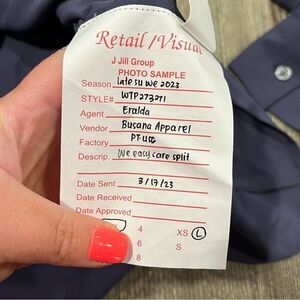 Retail/Visual
J Jill Group
PHOTO SAMPLE
Season late su we 2023
STYLE# WTP273271
Agent Eralda
Vendor Busana Apparel
Factory PT.
Descrip. We easy care split
Date Sent 3/17/23
Date Received
Date Approved
4 XS L
6 S
8